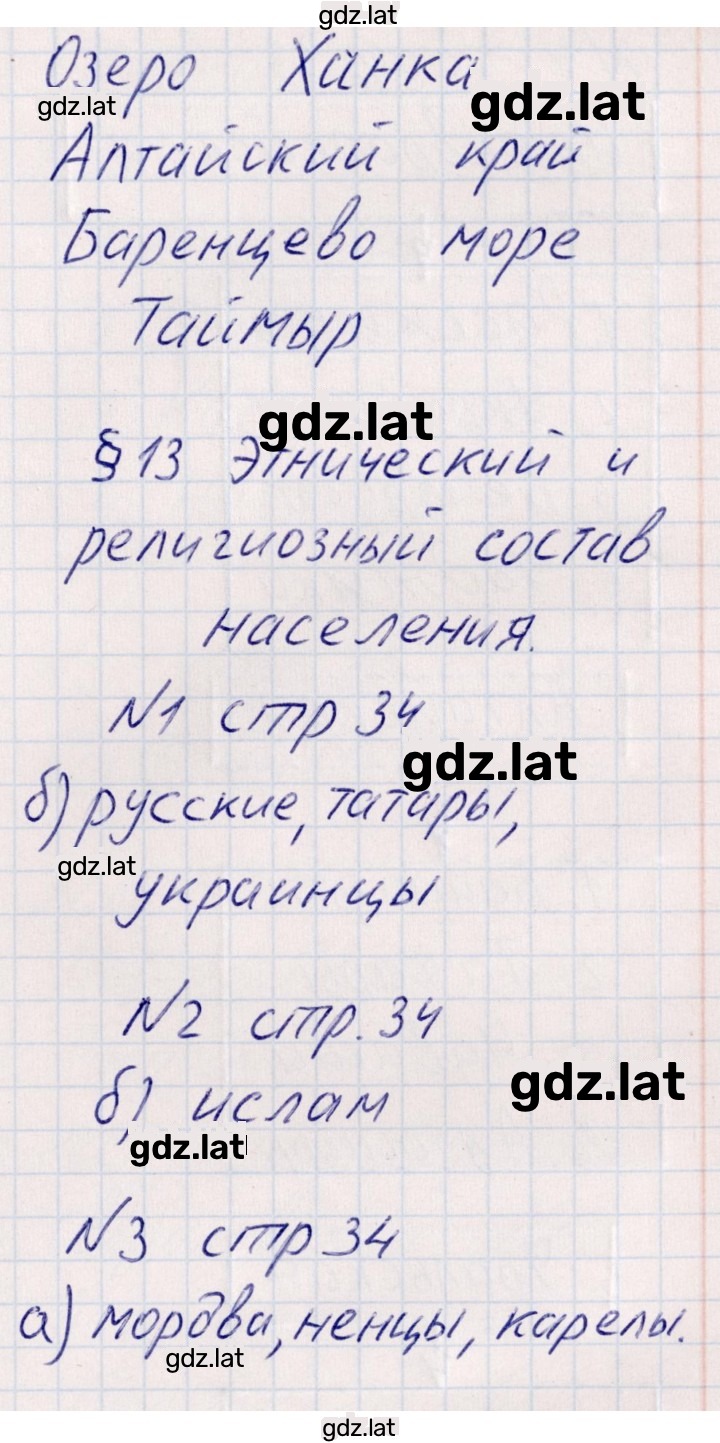 gdz.lat
Озеро Ханка
gdz.lat
gdz.lat
Алтайский край
Баренцево море
Таймыр
gdz.lat
§13 Этнический и
религиозный состав
населения.
N1 стр 34
gdz.lat
б) русские, татары,
gdz.lat
украинцы
N2 стр. 34
gdz.lat
б) ислам
gdz.lat
N3 стр 34
а) мордва, ненцы, карелы.
gdz.lat
gdz.lat